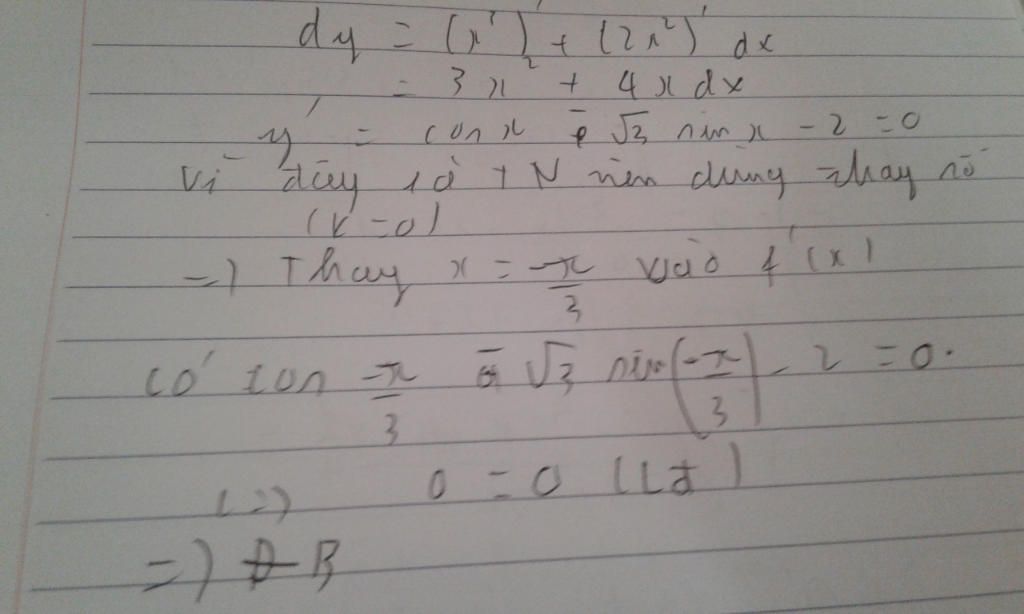 dy = (x³)' + (2x²)' dx
= 3x² + 4x dx
y' = cos x - √3 sin x - 2 = 0
Vì đây là TN nên dùng thay số
(k = 0)
=) Thay x = -π/3 vào f'(x)
có cos -π/3 - √3 sin(-π/3) - 2 = 0.
(=) 0 = 0 (Lđ)
=) B